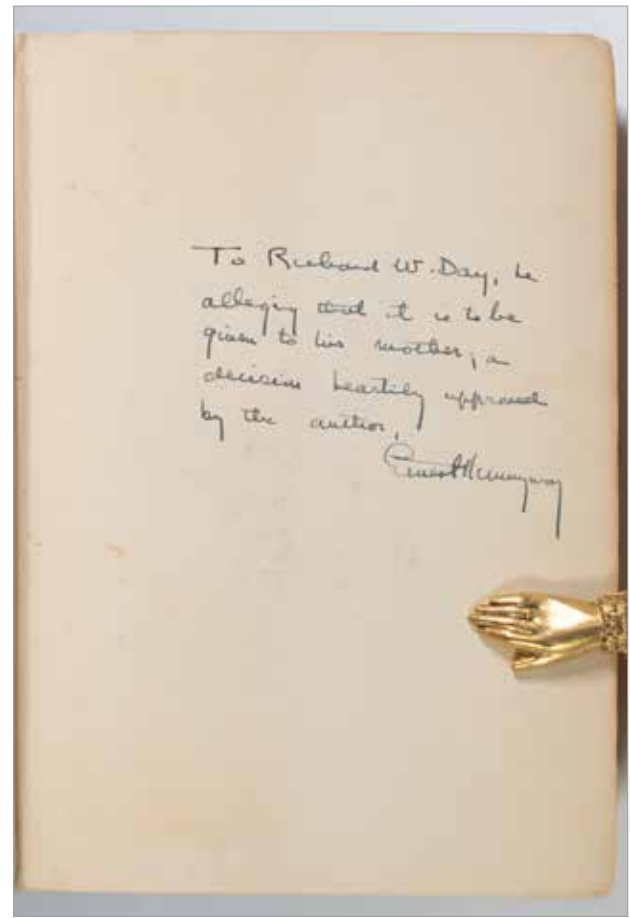 To Richard W. Day, he
alleging that it is to be
given to his mother, a
decision heartily approved
by the author,
Ernest Hemingway